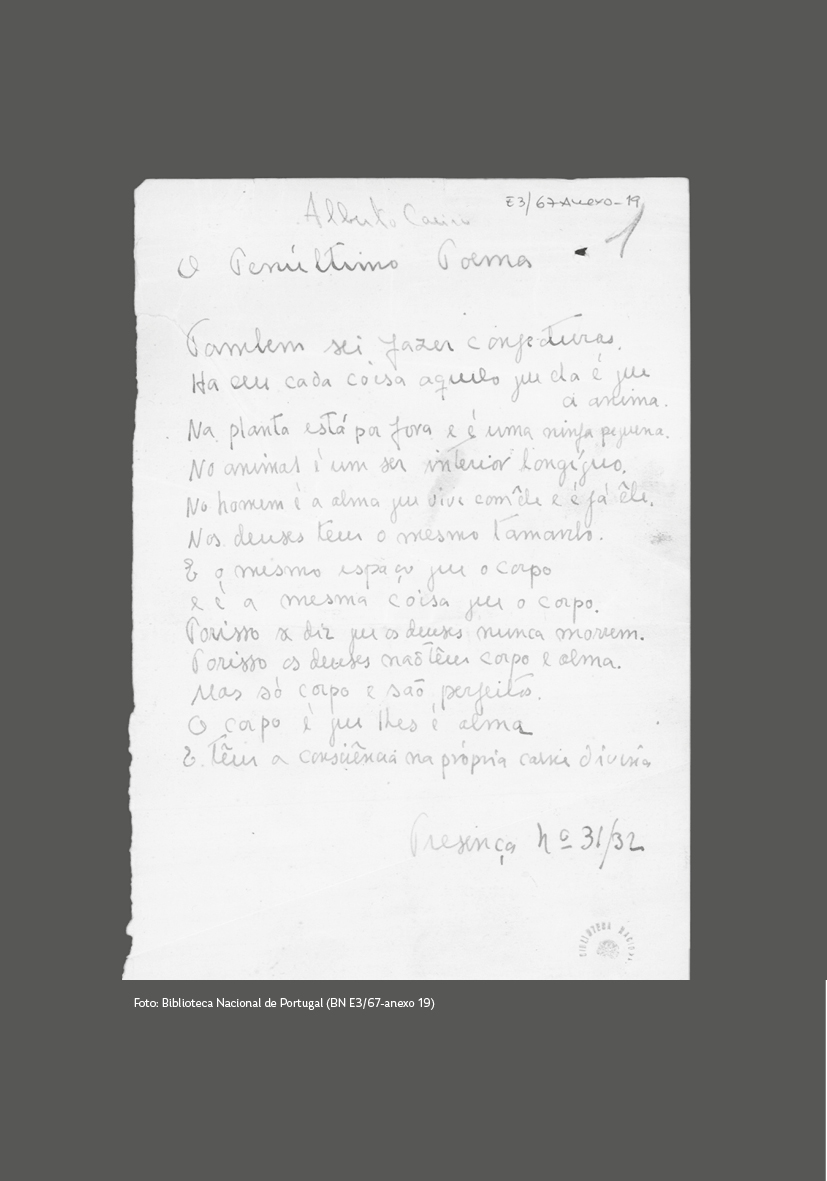 E3/67-Anexo-19
Alberto Caeiro
1
O Penúltimo Poema
Tambem sei fazer conjeturas.
Ha em cada coisa aquilo que ela é que
a anima.
Na planta está por fora e é uma ninfa pequena.
No animal é um ser interior longíguo.
No homem é a alma que vive com êle e é já êle.
Nos deuses tem o mesmo tamanho.
E o mesmo espaço que o corpo
e é a mesma coisa que o corpo.
Porisso se diz que os deuses nunca morrem.
Porisso os deuses não têm corpo e alma.
Mas só corpo e são perfeitos.
O corpo é que lhes é alma
E têm a consciência na própria carne divina
Presença Nº 31/32
BIBLIOTECA NACIONAL
Foto: Biblioteca Nacional de Portugal (BN E3/67-anexo 19)